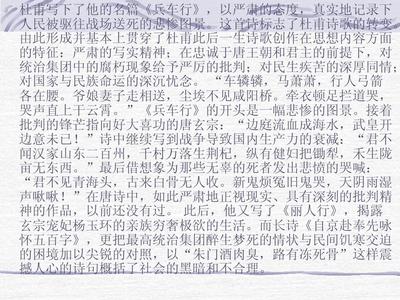 杜甫写下了他的名篇《兵车行》，以严肃的态度，真实地记录下
人民被驱往战场送死的悲惨图景。这首诗标志了杜甫诗歌的转变
由此形成并基本上贯穿了杜甫此后一生诗歌创作在思想内容方面
的特征：严肃的写实精神；在忠诚于唐王朝和君主的前提下，对
统治集团中的腐朽现象给予严厉的批判；对民生疾苦的深厚同情；
对国家与民族命运的深沉忧念。 “车辚辚，马萧萧，行人弓箭
各在腰。爷娘妻子走相送，尘埃不见咸阳桥。牵衣顿足拦道哭，
哭声直上干云霄。”《兵车行》的开头是一幅悲惨的图景。接着
批判的锋芒指向好大喜功的唐玄宗； “边庭流血成海水，武皇开
边意未已！”诗中继续写到战争导致国内生产力的衰减： “君不
闻汉家山东二百州，千村万落生荆杞，纵有健妇把锄犁，禾生陇
亩无东西。”最后借想象为那些无辜的死者发出悲愤的哭喊：
“君不见青海头，古来白骨无人收。新鬼烦冤旧鬼哭，天阴雨湿
声啾啾！”在唐诗中，如此严肃地正视现实、具有深刻的批判精
神的作品，以前还没有过。 此后，他又写了《丽人行》，揭露
玄宗宠妃杨玉环的亲族穷奢极欲的生活。而长诗《自京赴奉先咏
怀五百字》，更把最高统治集团醉生梦死的情状与民间饥寒交迫
的困境加以尖锐的对照，以“朱门酒肉臭，路有冻死骨”这样震
撼人心的诗句概括了社会的黑暗和不合理。